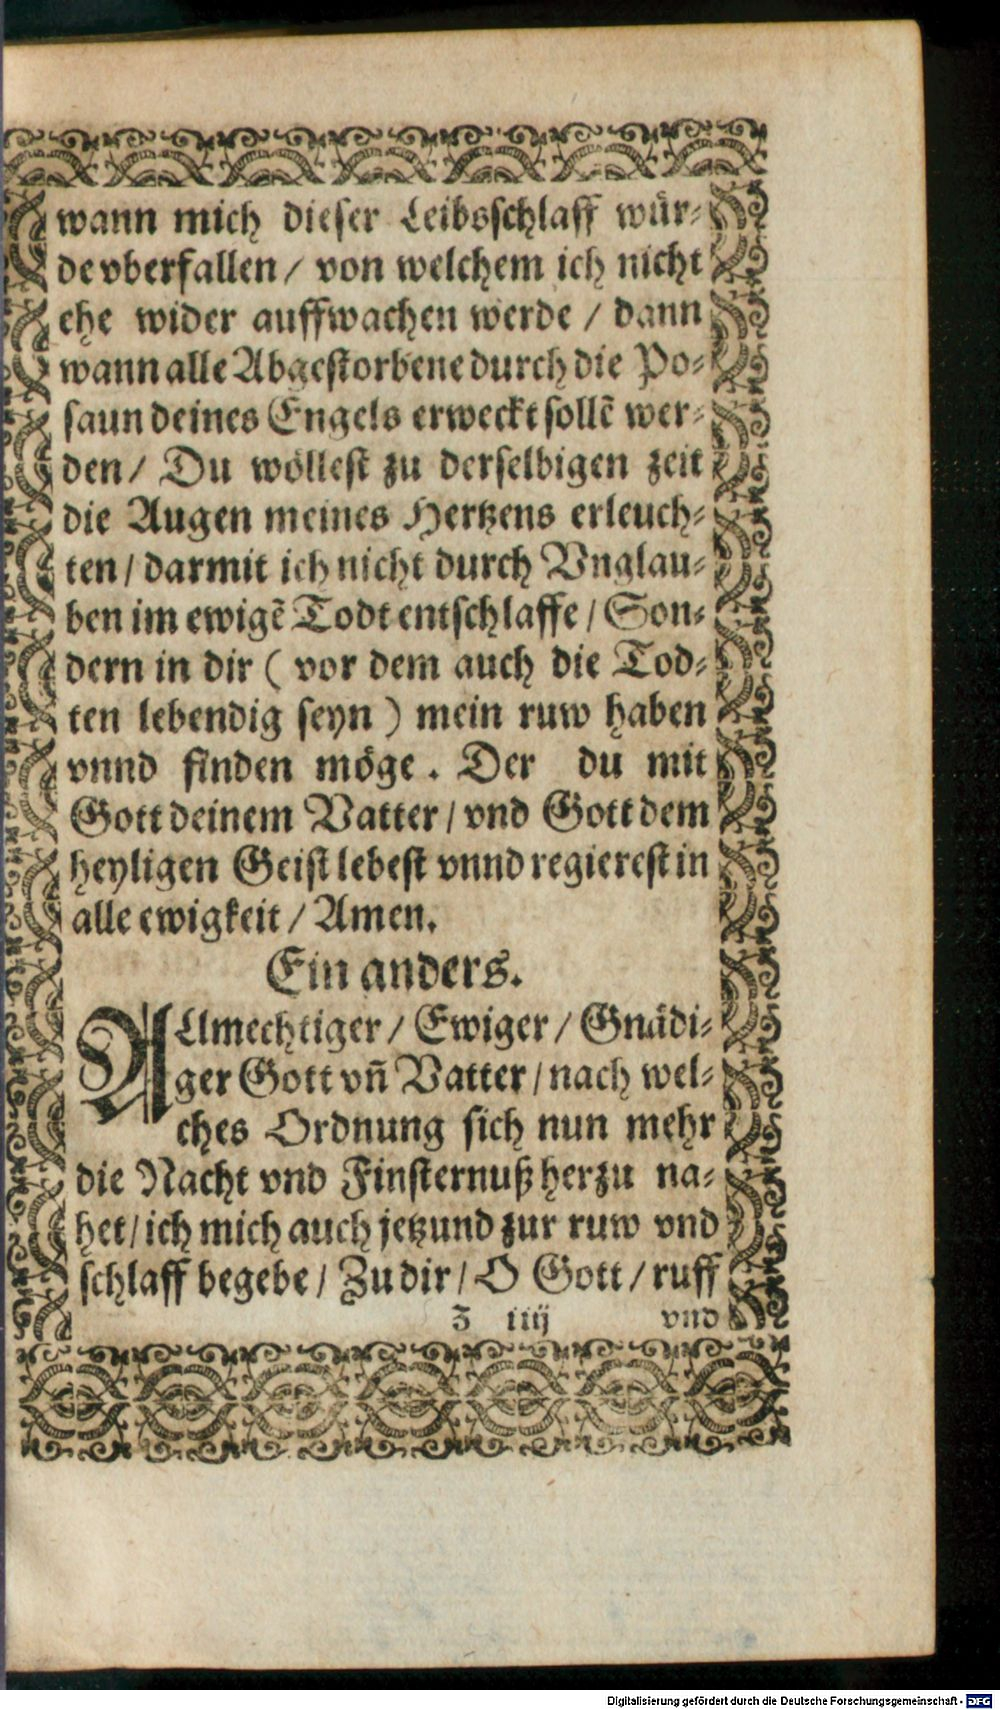 wann mich dieser Leibsschlaff wür-
de vberfallen / von welchem ich nicht
ehe wider auffwachen werde / dann
wann alle Abgestorbene durch die Po-
saun deines Engels erweckt sollē wer-
den / Du wöllest zu derselbigen zeit
die Augen meines Hertzens erleuch-
ten / darmit ich nicht durch Vnglau-
ben im ewigē Todt entschlaffe / Son-
dern in dir ( vor dem auch die Tod-
ten lebendig seyn ) mein ruw haben
vnnd finden möge . Der du mit
Gott deinem Vatter / vnd Gott dem
heyligen Geist lebest vnnd regierest in
alle ewigkeit / Amen.
Ein anders.
ALlmechtiger / Ewiger / Gnädi-
ger Gott vñ Vatter / nach wel-
ches Ordnung sich nun mehr
die Nacht vnd Finsternuß herzu na-
het / ich mich auch jetzund zur ruw vnd
schlaff begebe / Zu dir / O Gott / ruff
Z iiij vnd
Digitalisierung gefördert durch die Deutsche Forschungsgemeinschaft - DFG